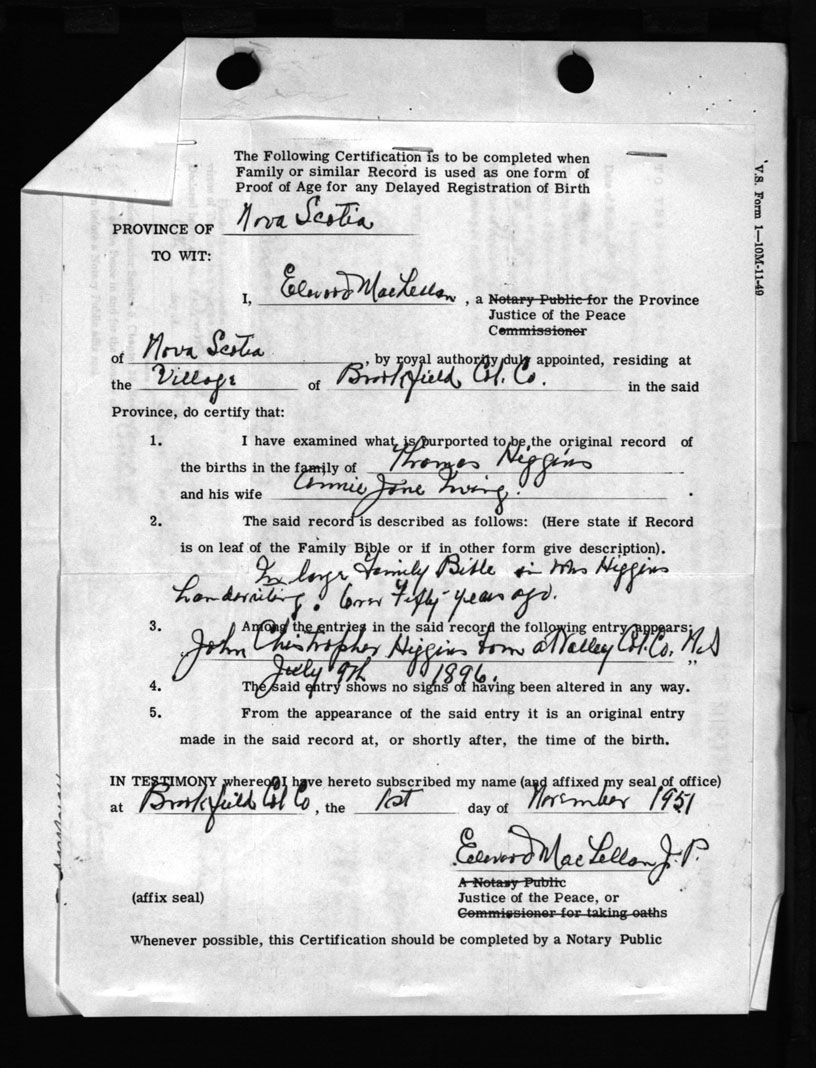 The Following Certification is to be completed when
Family or similar Record is used as one form of
Proof of Age for any Delayed Registration of Birth
V.S. Form 1—10M-11-49
PROVINCE OF Nova Scotia
TO WIT:
I, Elwood MacLellan, a Notary Public for the Province
Justice of the Peace
Commissioner
of Nova Scotia, by royal authority duly appointed, residing at
the Village of Brookfield, Col. Co. in the said
Province, do certify that:
1. I have examined what is purported to be the original record of
the births in the family of Thomas Higgins
and his wife Annie Jane Ewing.
2. The said record is described as follows: (Here state if Record
is on leaf of the Family Bible or if in other form give description).
In large Family Bible in Mrs Higgins
handwriting. Over Fifty years ago.
3. Among the entries in the said record the following entry appears:
John Christopher Higgins born at Valley Col. Co. N.S
July 9th 1896. "
4. The said entry shows no signs of having been altered in any way.
5. From the appearance of the said entry it is an original entry
made in the said record at, or shortly after, the time of the birth.
IN TESTIMONY whereof I have hereto subscribed my name (and affixed my seal of office)
at Brookfield Col Co, the 1st day of November 1951
Elwood MacLellan J.P.
A Notary Public
(affix seal) Justice of the Peace, or
Commissioner for taking oaths
Whenever possible, this Certification should be completed by a Notary Public